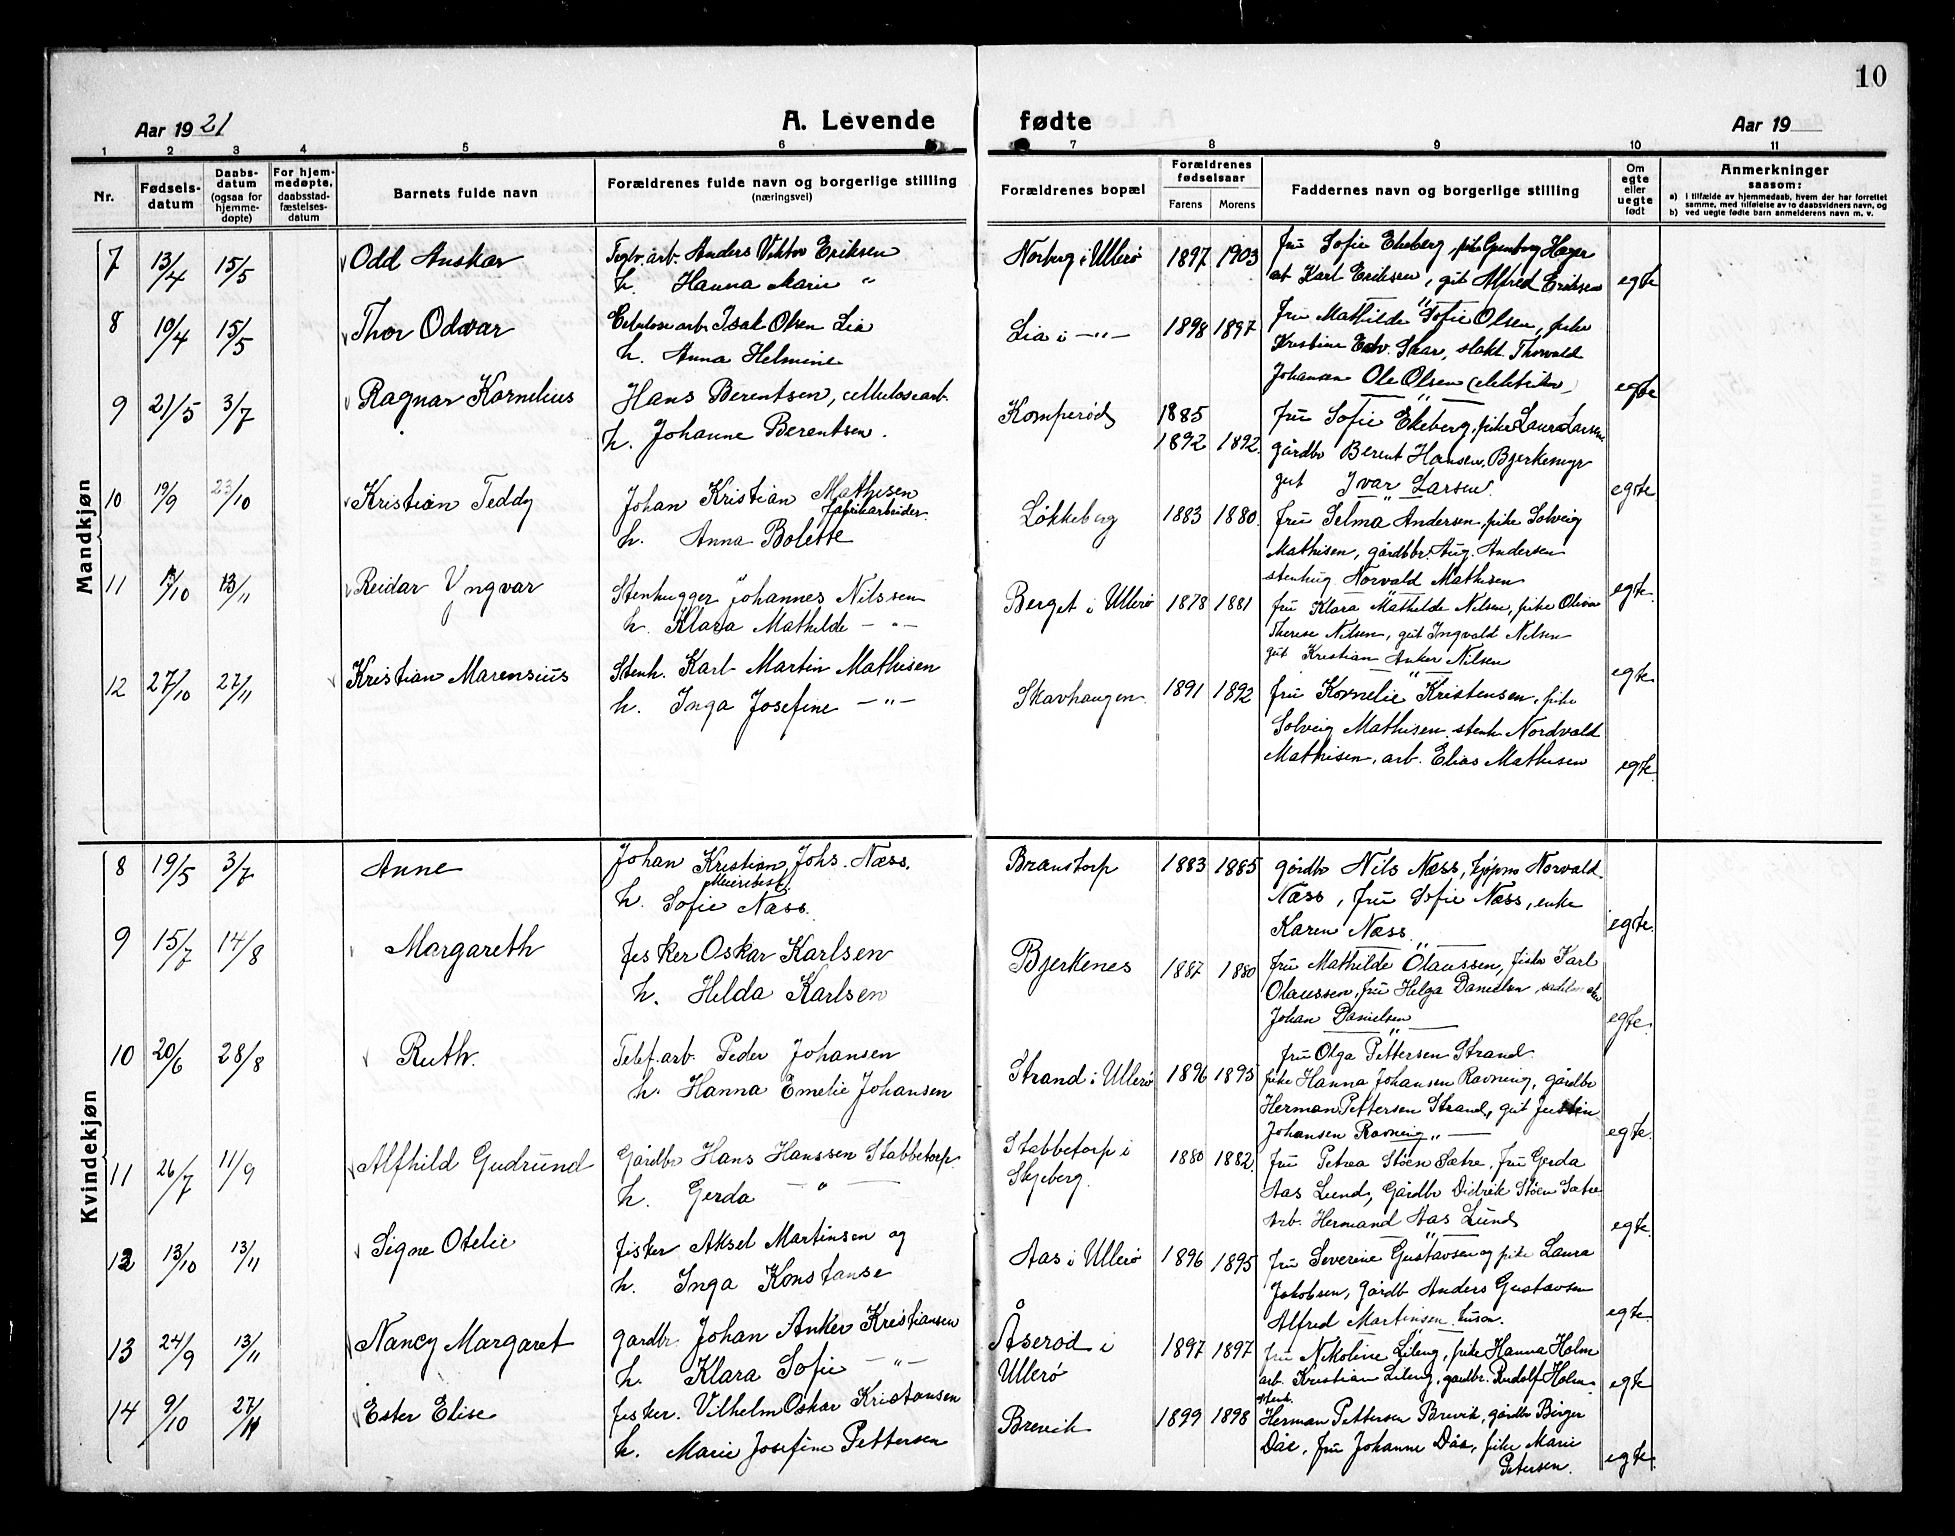 10
Aar 1921
A. Levende
fødte
Aar 19
1 2 3 4 5 6 7 8 9 10 11
Nr.
Fødsels-
datum
Daabs-
datum
(ogsaa for
hjemme-
døpte)
For hjem-
medøpte,
daabsstad-
fæstelses-
datum
Barnets fulde navn
Forældrenes fulde navn og borgerlige stilling
(næringsvei)
Forældrenes bopæl
Forældrenes
fødselsaar
Farens Morens
Faddernes navn og borgerlige stilling
Om
egte
eller
uegte
født
Anmerkninger
saasom:
a) i tilfælde av hjemmedaab, hvem der har forrettet
samme, med tilføielse av to daabsvidners navn, og
b) ved uegte fødte barn anmelderens navn m. v.
Mandkjøn
7 13/4 15/5 Odd Anskar Teglv.arb. Anders Viktor Eriksen Norberg i Ullerø 1897 1903 fru Sofie Ekeberg, pike Gunborg Hager
h. Hanna Marie " arb Karl Eriksen, gut Alfred Eriksen egte
8 10/4 15/5 Thor Odvar Celulosearb Isak Olsen Lia Lia i -"- 1898 1897 fru Mathilde Sofie Olsen, pike
h. Anna Helmine Kristine Edv. Skar, slakt. Thorvald
Johansen Ole Olsen (elektriker) egte
9 21/5 3/7 Ragnar Kornelius Hans Berentsen, cellulosearb. Komperød 1885 fru Sofie Ekeberg, pike Laura Larsen
h. Johanne Berentsen. 1892 1892. gårdbr Berent Hansen, Bjerkemyr
gut Ivar Larsen. egte
10 19/9 23/10 Kristian Teddy Johan Kristian Mathisen
fabrikarbeider. Løkkeberg 1883 1880. fru Selma Andersen, pike Solveig
h. Anna Bolette Mathisen, gårdbr. Aug. Andersen
stenhug. Norvald Mathisen egte.
11 /10 13/11 Reidar Yngvar Stenhugger Johannes Nilssen Berget i Ullerø 1878 1881 fru Klara Mathilde Nilsen, pike Oliva
h. Klara Mathilde -"- Therese Nilsen, gut Ingvald Nilsen
gut Kristian Anker Nilsen egte.
12 27/10 27/11 Kristian Marensius Stenh. Karl Martin Mathisen Skavhaugen. 1891 1892 fru Kornelie Kristensen, pike
h. Inga Josefine -"- Solveig Mathisen. stenh Nordvald
Mathisen, arb. Elias Mathisen egte.
Kvindekjøn
8 19/5 3/7 Anne Johan Kristian Johs. Næss. Branstorp 1883 1885 gårdbr Nils Næss, Norvald
Meieribest.
h. Sofie Næss. Næss, fru Sofie Næss, enke
Karen Næss. egte.
9 15/7 14/8 Margareth fisker Oskar Karlsen Bjerkenes 1887 1880 fru Mathilde Olaussen, fisker Karl
h. Hilda Karlsen Olaussen, fru Helga Danielsen,
Johan Danielsen egte.
10 20/6 28/8 Ruth. Telef.arb. Peder Johansen fru Olga Pettersen Strand.
h. Hanna Emelie Johansen Strand i Ullerø 1896 1895 pike Hanna Johansen Ravneng, gårdbr
Herman Pettersen Strand, gut Justin
Johansen Ravneng egte.
11 26/7 11/9 Alfhild Gudrund Gårdbr Hans Hanssen Stabbetorp. Stabbetorp i
Skjeberg. 1880 1882. fru Petrea Støen Sætre, fru Gerda
h. Gerda " Aas Lund, Gårdbr Didrik Støen Sætre
Arb. Hermand Aas Lund egte.
12 13/10 13/11 Signe Otelie fisker Aksel Martinsen og Aas i Ullerø 1896 1895 fru Severine Gustavsen og pike Laura
h. Inga Konstanse Jakobsen, Gårdb Anders Gustavsen
Alfred Martinsen. egte.
13 24/9 13/11 Nancy Margaret gardbr. Johan Anker Kristiansen Åserød i
Ullerø 1897 1897 fru Nikoline Lileng, pike Hanna Holm
h. Klara Sofie -"- arb. Kristian Lileng, gardbr. Rudolf Holm egte
14 9/10 27/11 Ester Elise fisker. Vilhelm Oskar Kristansen Brevik 1899 1898 Herman Pettersen Brevik, gårdbr Birger
h. Marie Josefine Pettersen Dåe, fru Johanne Dåe, pike Marie
Petersen. egte.